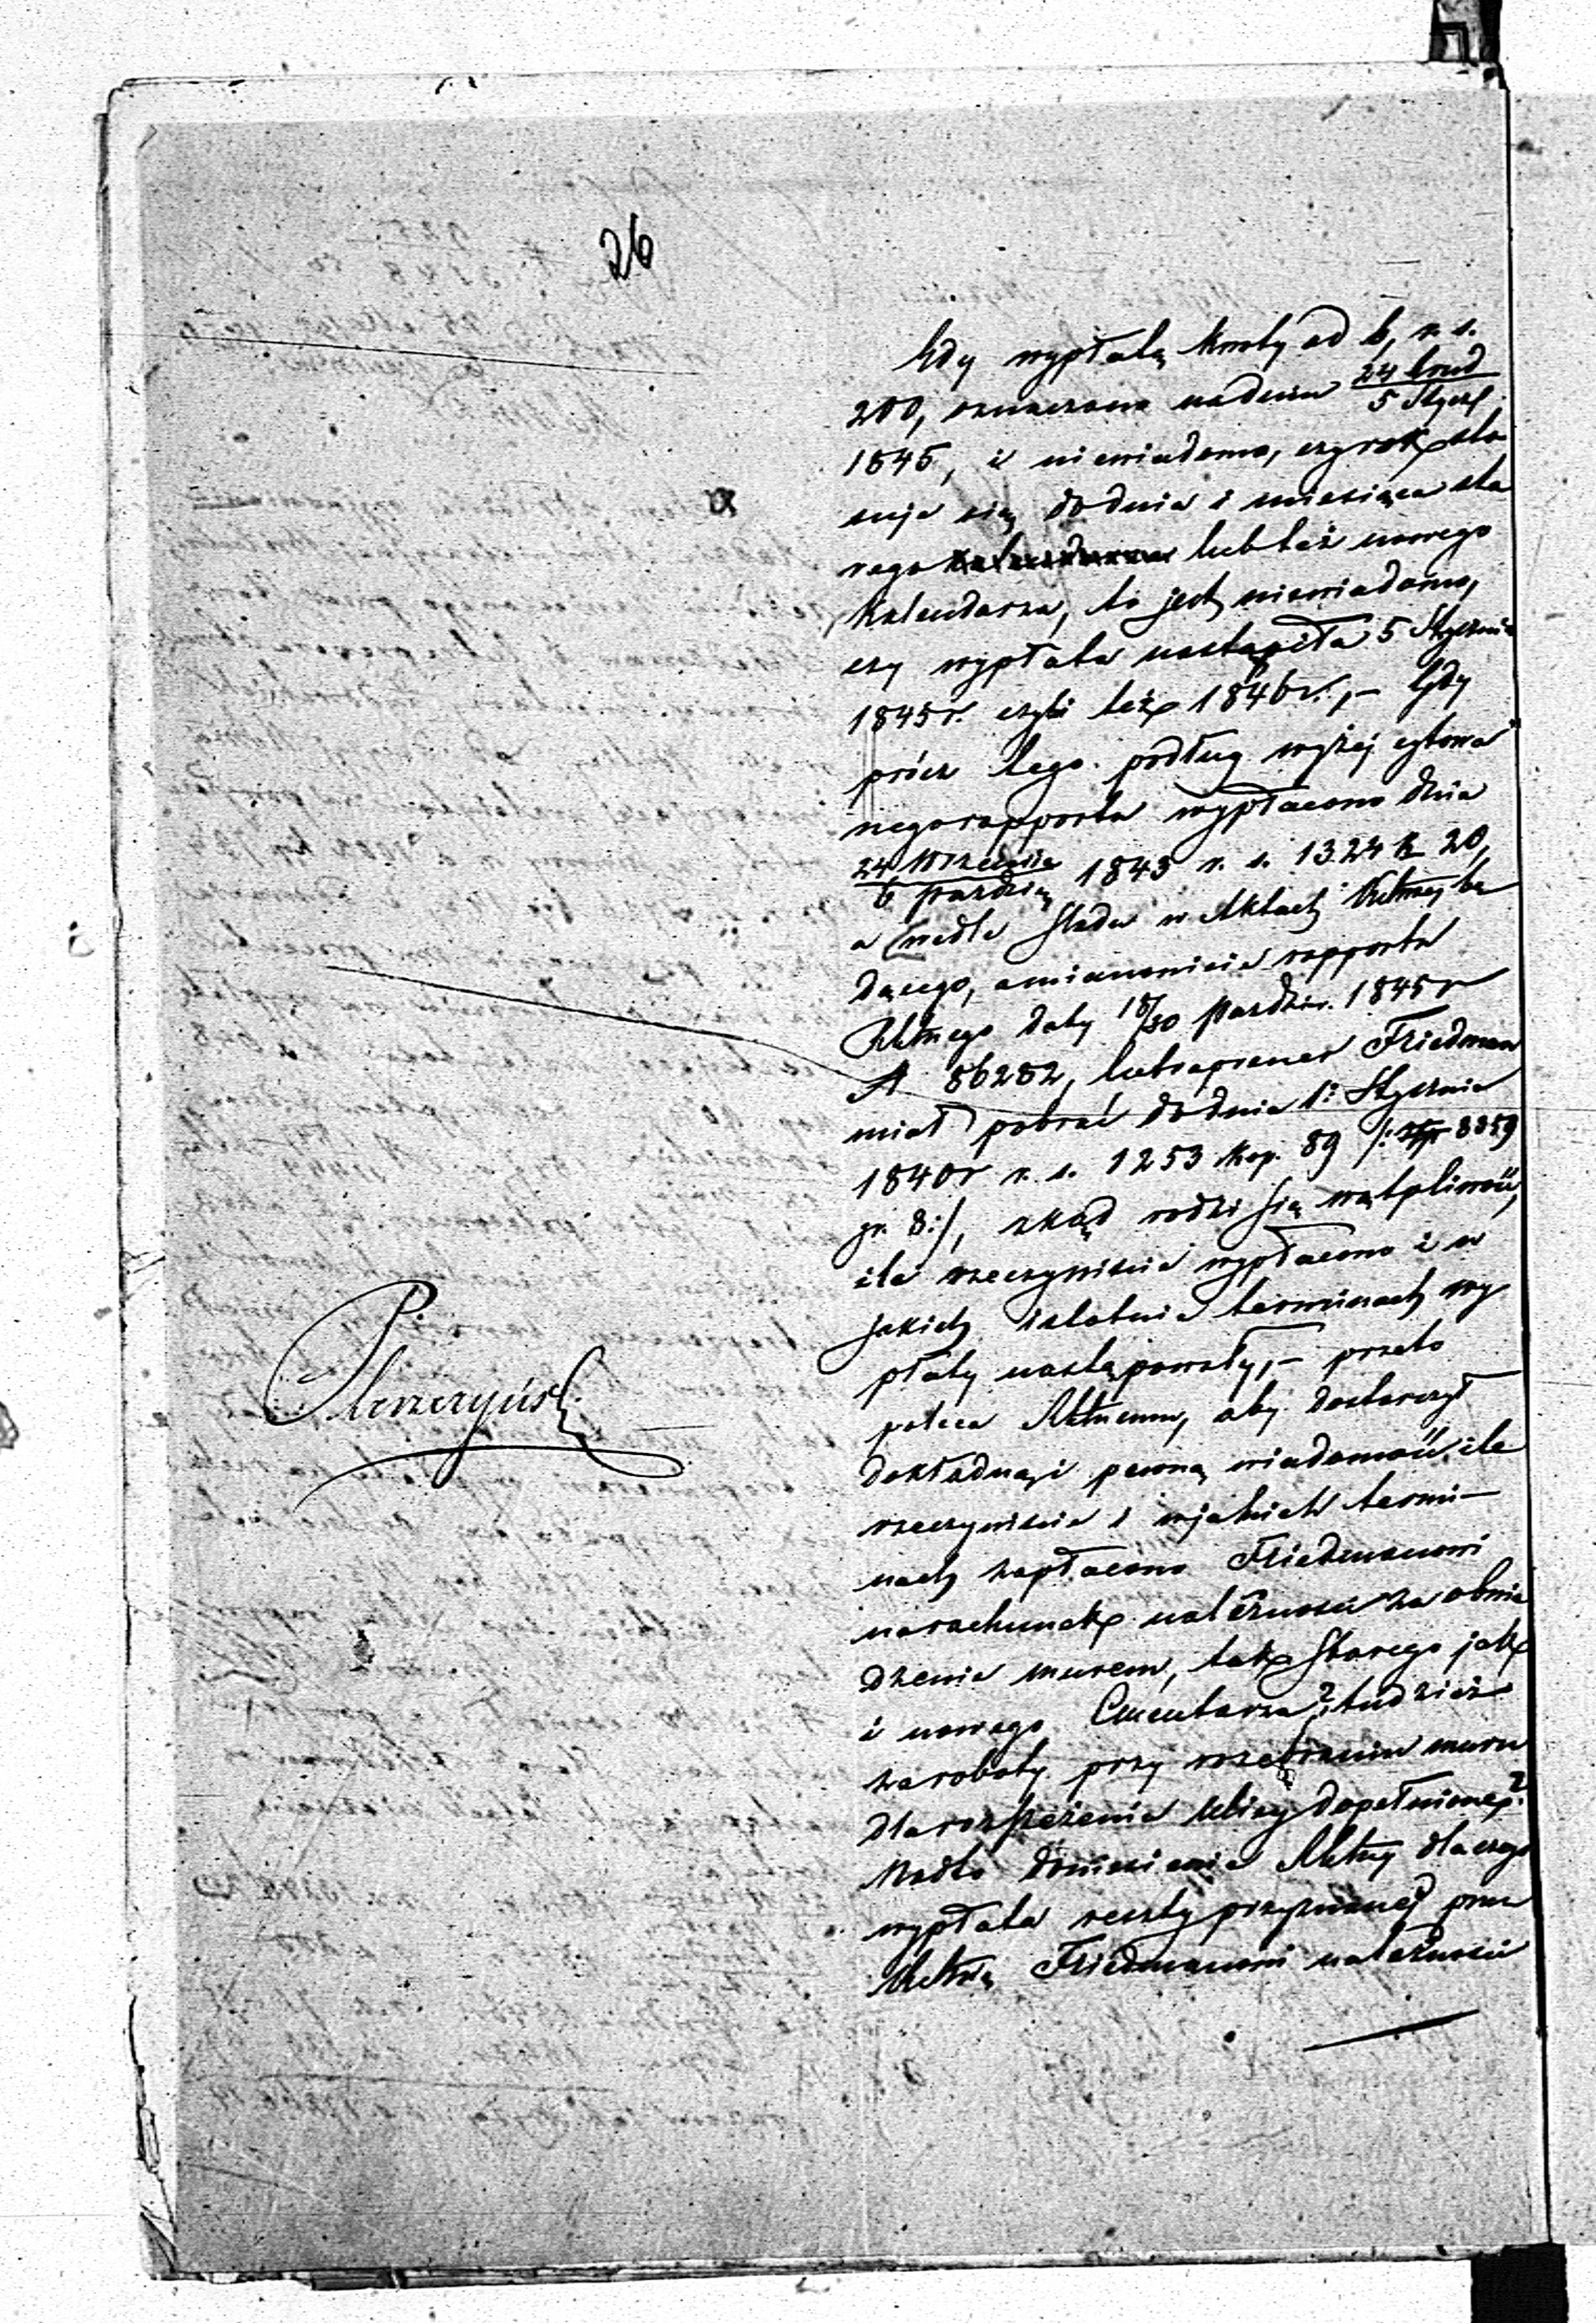 26
Gdy wypłatę kwoty ad b, r. s.
200, oznaczono nadniu 24 Grud
5 Stycz
1845, i niewiadomo, czy rok sto
suje się do dnia i miesiąca sta
rego lub też nowego
Kalendarza, to jest niewiadomo,
czy wypłata nastąpiła 5 Stycznia
1845r. czyli też 1846r., – Gdy
prócz tego podług wyżej cytowa
negorapportu wypłacono dnia
24 Września
6 Paździer 1843 r. s. 1324 k 20,
a wedle śladu w Aktach bę
dącego, amianowicie rapportu
daty 18/30 Paździer. 1845 r
N 86282, Friedman
miał pobrać do dnia 1: Stycznia
1840r r. s. 1253 kop. 89 /: złp 8359
gr. 8:/, zkąd rodzi się wątpliwość,
ile rzeczywiście wypłacono i w
jakich istotnie terminach wy
płaty nastąpowały, – przeto
poleca, aby dostarczył
dokładną i pewną wiadomość, ile
rzeczywiście i wjakich termi–
nach zapłacono Friedmanowi
narachunek należności za obwie
dzenie murem, tak starego jak
i nowego Cmentarza? tudzież
zaroboty przy rozebraniu muru
dla rozszerzenia ulicy dopełnione?
Nadto doniesienie dlaczego
wypłata reszty przyznanej przez
Friedmanowi należności